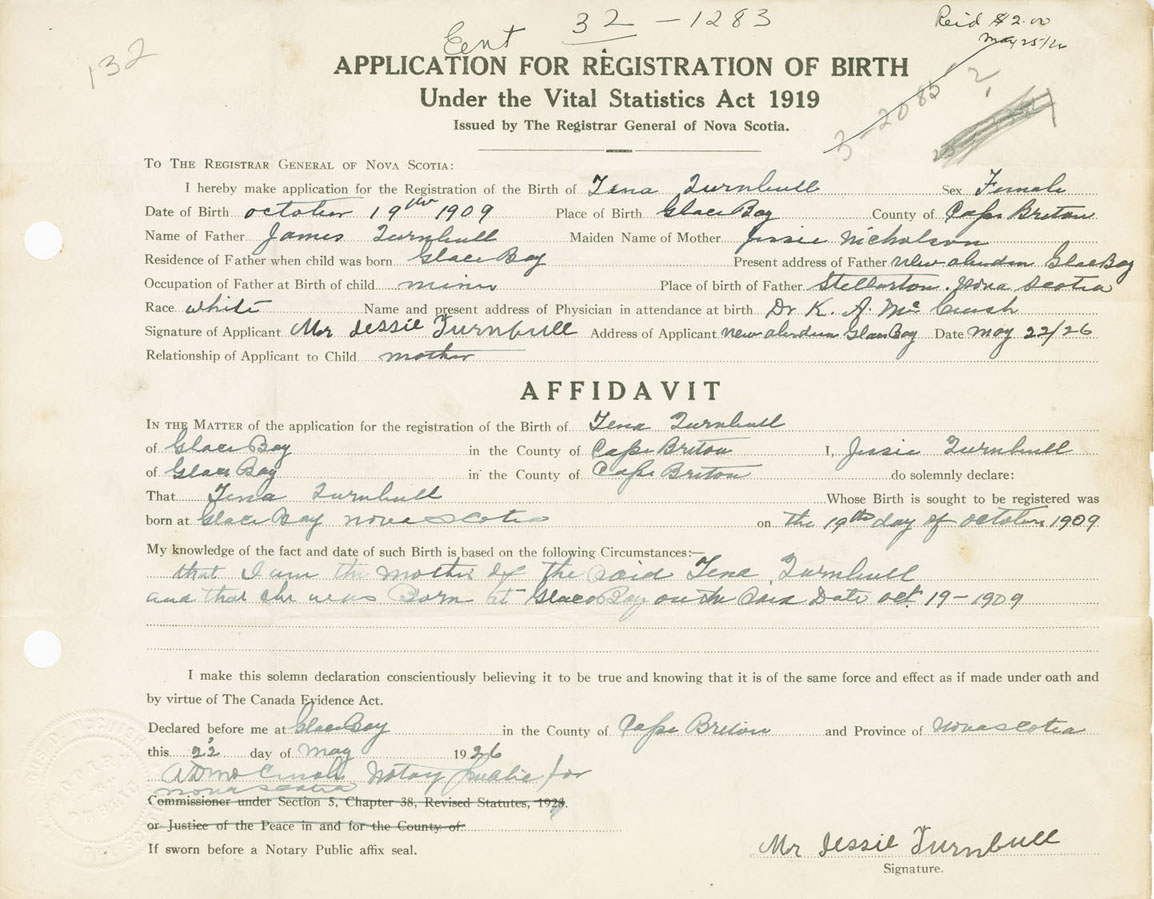 Ent 32 - 1283
132
Reid $2.00
May 25/26
APPLICATION FOR REGISTRATION OF BIRTH
Under the Vital Statistics Act 1919
Issued by The Registrar General of Nova Scotia.
3-2085 ?
TO THE REGISTRAR GENERAL OF NOVA SCOTIA:
I hereby make application for the Registration of the Birth of Tena Turnbull Sex Female
Date of Birth october 19th 1909 Place of Birth Glace Bay County of Cape Breton
Name of Father James Turnbull Maiden Name of Mother Jessie Nicholson
Residence of Father when child was born Glace Bay Present address of Father New aberdeen Glace Bay
Occupation of Father at Birth of child miner Place of birth of Father Stellarton Nova Scotia
Race white Name and present address of Physician in attendance at birth Dr. K. A. Mc Cuish
Signature of Applicant Mr Jessie Turnbull Address of Applicant new aberdeen Glace Bay Date May 22/26
Relationship of Applicant to Child mother
AFFIDAVIT
IN THE MATTER of the application for the registration of the Birth of Tena Turnbull
of Glace Bay in the County of Cape Briton I, Jessie Turnbull
of Glace Bay in the County of Cape Briton do solemnly declare:
That Tena Turnbull Whose Birth is sought to be registered was
born at Glace Bay nova scotia on the 19th day of october 1909
My knowledge of the fact and date of such Birth is based on the following Circumstances:—
that I am the mother of the said Tena Turnbull
and that she was Born at Glace Bay on the said Date oct 19 - 1909
I make this solemn declaration conscientiously believing it to be true and knowing that it is of the same force and effect as if made under oath and
by virtue of The Canada Evidence Act.
Declared before me at Glace Bay in the County of Cape Breton and Province of Nova Scotia
this 22 day of May 1926
Notary Public for
nova scotia
Commissioner under Section 5, Chapter 38, Revised Statutes, 1923.
or Justice of the Peace in and for the County of
If sworn before a Notary Public affix seal.
Mr Jessie Turnbull
Signature.